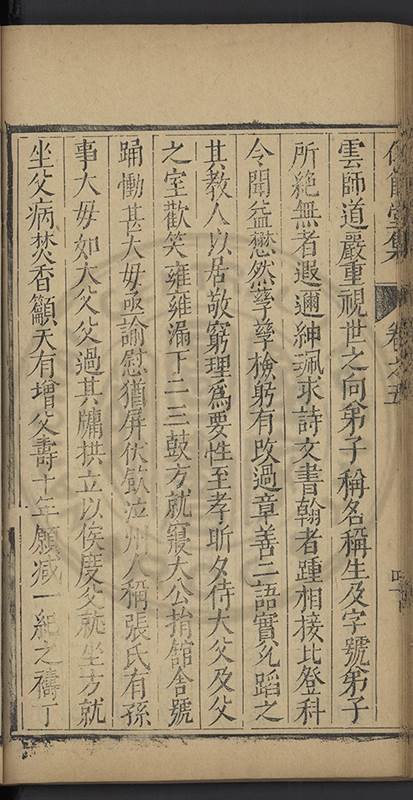 堂集 卷之五
雲師道嚴重視世之向弟子稱名稱生及字號弟子
所絶無者遐邇紳珮求詩文書翰者踵相接比登科
令聞益懋然孳孳檢躬有改過章善二語實允蹈之
其敎人以居敬窮理爲要性至孝昕夕侍大父及父
之室歡笑雍雍漏下二三鼓方就寢大公捐館舍號
踊慟甚大毋亟諭慰猶屏伏飲泣州人稱張氏有孫
事大毋如大父父過其牗拱立以俟度父就坐方就
坐父病焚香籲天有增父壽十年願减一紀之禱丁